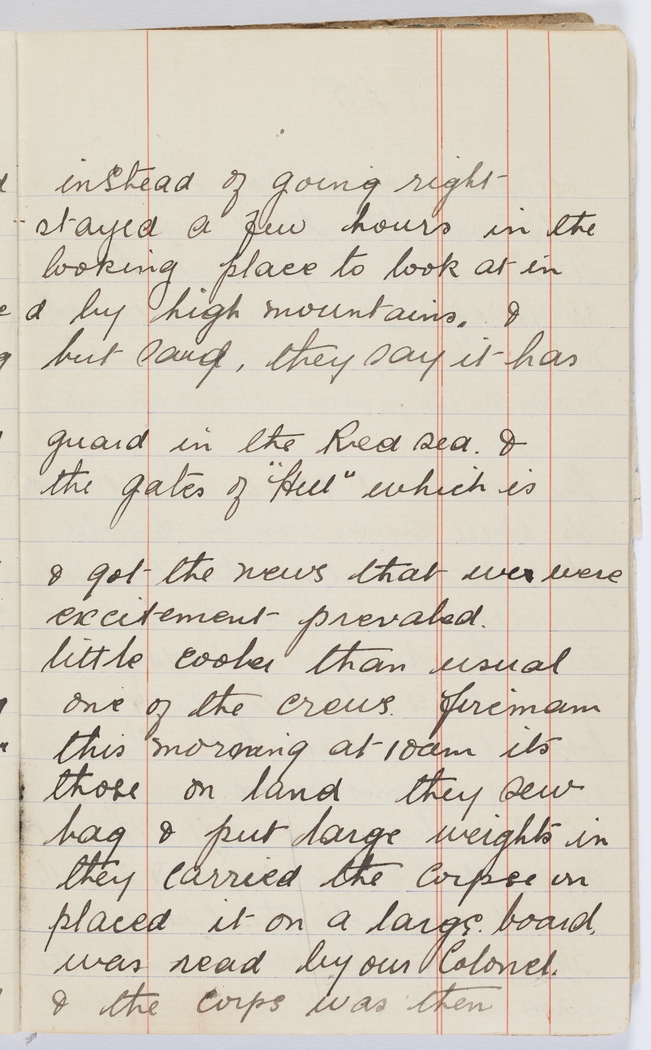 instead of going right
stayed a few hours in the
looking place to look at in
d by high mountains. &
but sand, they say it has
guard in the Red sea. &
the gates of "Hell" which is
& got the news that we were
excitement prevaled.
little cooler than usual
one of the crews. firemam
this morning at 10am its
those on land they sew
bag & put large weights in
they carried the corpse on
placed it on a large board,
was read by our Colonel.
& the corps was then